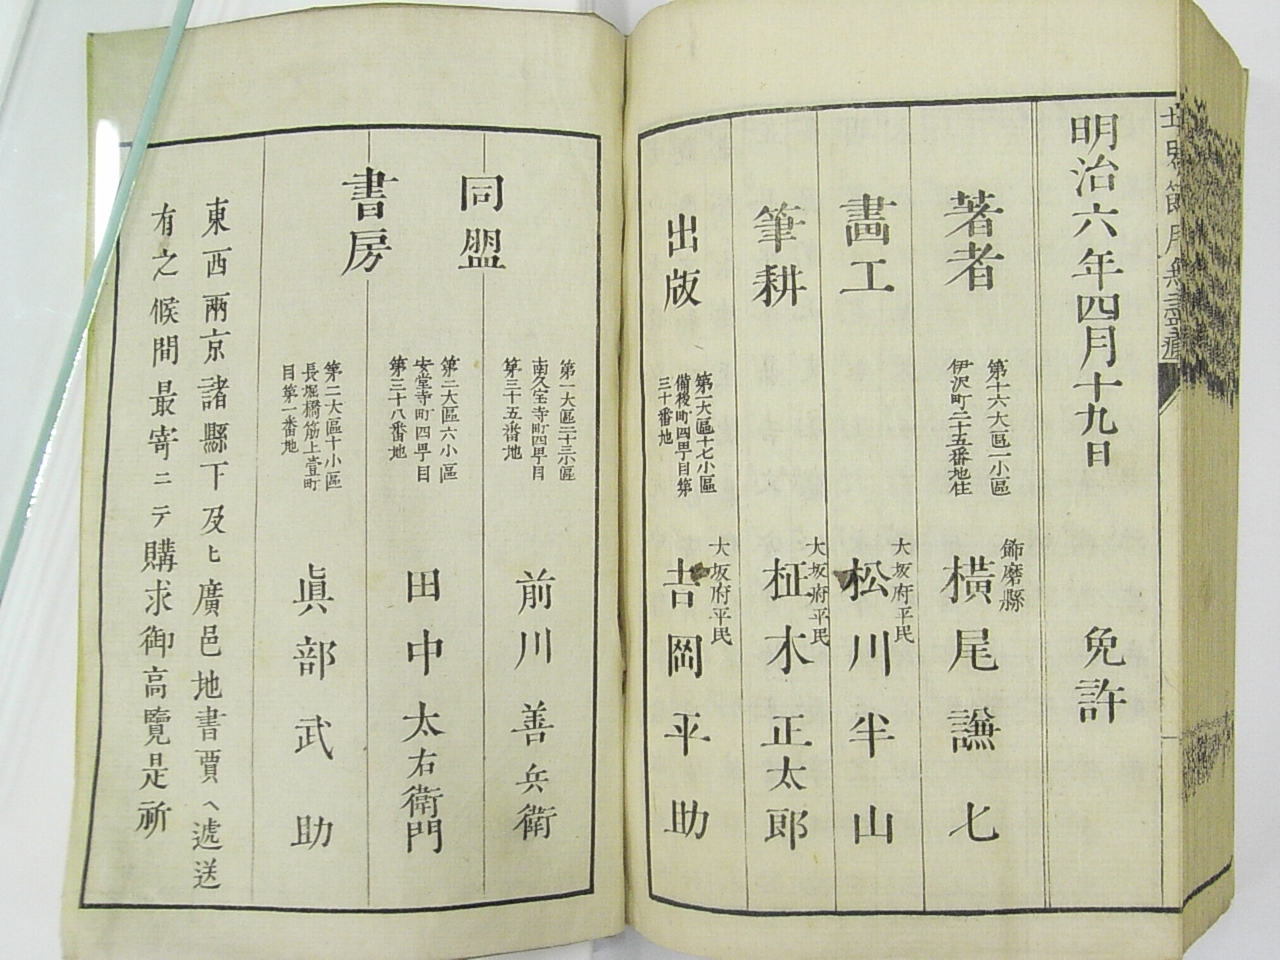 明治六年四月十九日 免許
著者 第十六大區一小區
伊沢町二十五番地住
飾磨縣
橫尾謙七
畵工 大坂府平民
松川半山
筆耕 大坂府平民
柾木正太郎
出版 第一大區十七小區
備後町四丁目第
三十番地
大坂府平民
吉岡平助
同盟
書房
第一大區二十三小區
南久宝寺町四丁目
第三十五番地
前川善兵衛
第二大區六小區
安堂寺町四丁目
第三十八番地
田中太右衛門
第二大區十小區
長堀橋筋上壹町
目第一番地
眞部武助
東西兩京諸縣下及ヒ廣邑地書賈ヘ逓送
有之候間最寄ニテ購求御高覽是祈